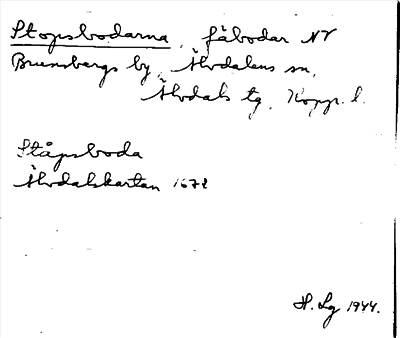 Stopsbodarna, fäbodar NV
Brunnbergs by, Älvdalens sn,
Älvdals tg, Kopp. l.
Ståpsboda
Älvdalskartan 1672
H. Lg 1944.